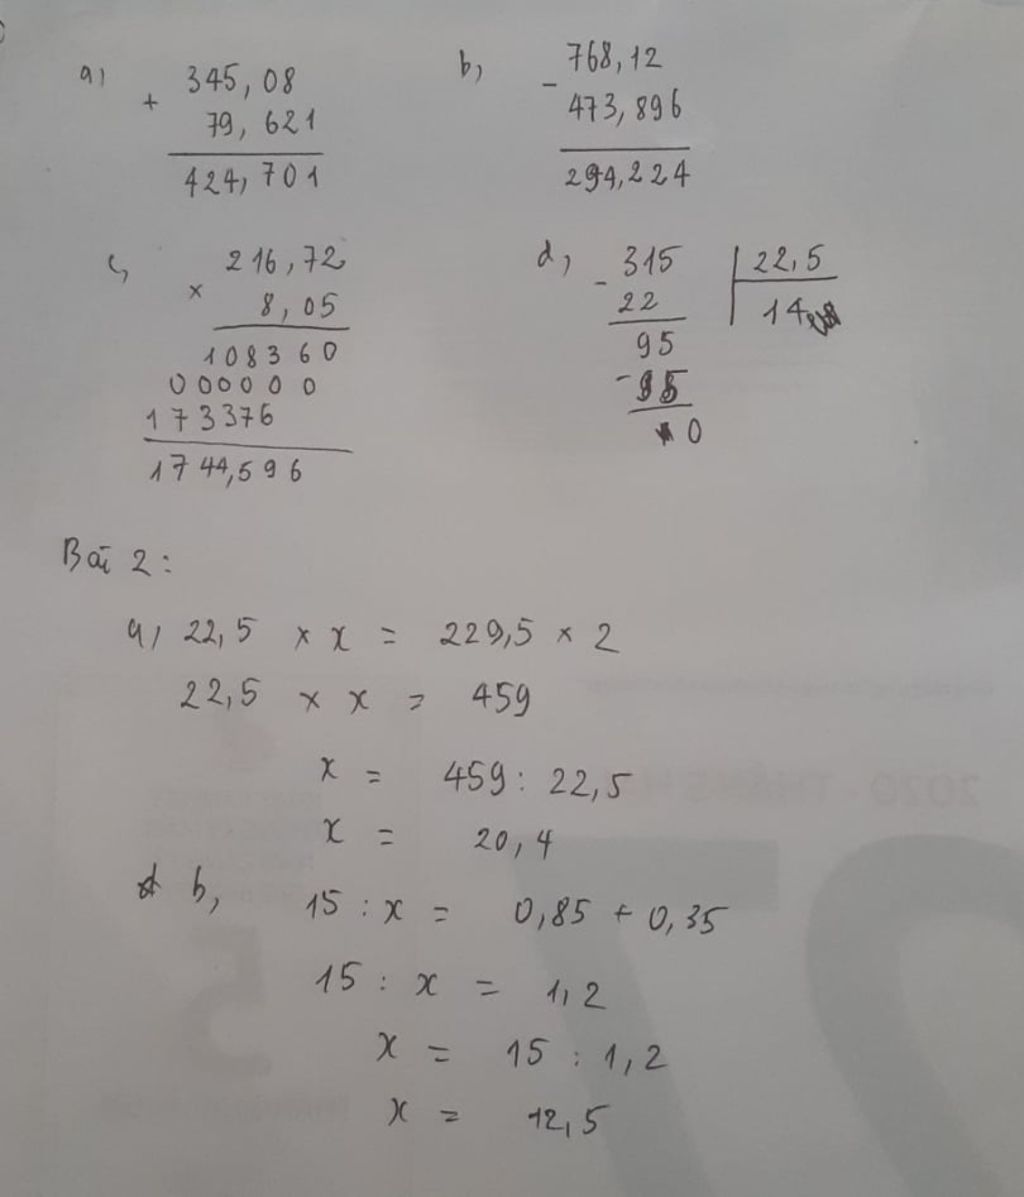 a, 345,08
+
79,621
424,701
b, 768,12
-
473,896
294,224
c, 216,72
×
8,05
108360
000000
173376
1744,596
d, 315 22,5
-
22 14
95
-95
0
Bài 2:
a, 22,5 × x = 229,5 × 2
22,5 × x = 459
x = 459 : 22,5
x = 20,4
b, 15 : x = 0,85 + 0,35
15 : x = 1,2
x = 15 : 1,2
x = 12,5
2020 -
27
5